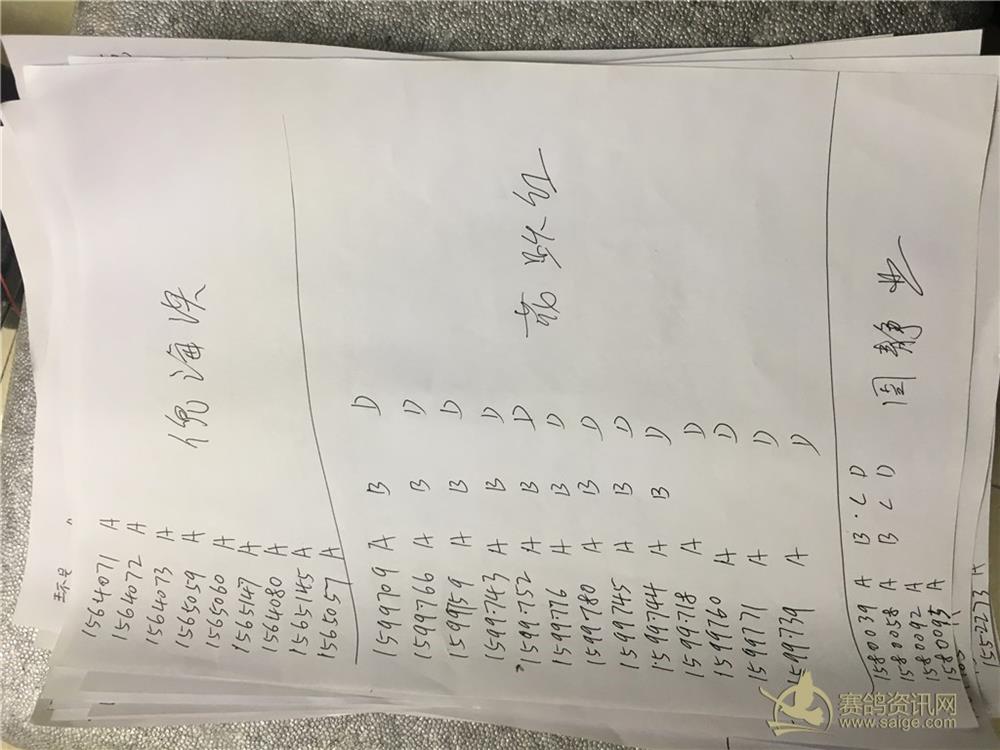 1564071 A
1564072 A
1564073 A
1565059 A
1565060 A
1565147 A
1564080 A
1565145 A
1565057 A
倪海洪
1599709 A B D
1599766 A B D
1599759 A B D
1599743 A B D
1599752 A B D
1599776 A B D
1599780 A B D
1599745 A B D
1599744 A B D
1599718 A D
1599760 A D
1599771 A D
1599739 A D
1580039 A B·C D
1580058 A B C D
1580092 A
1580093 A
周静业
155-2273 A
赛鸽资讯网
www.saige.com